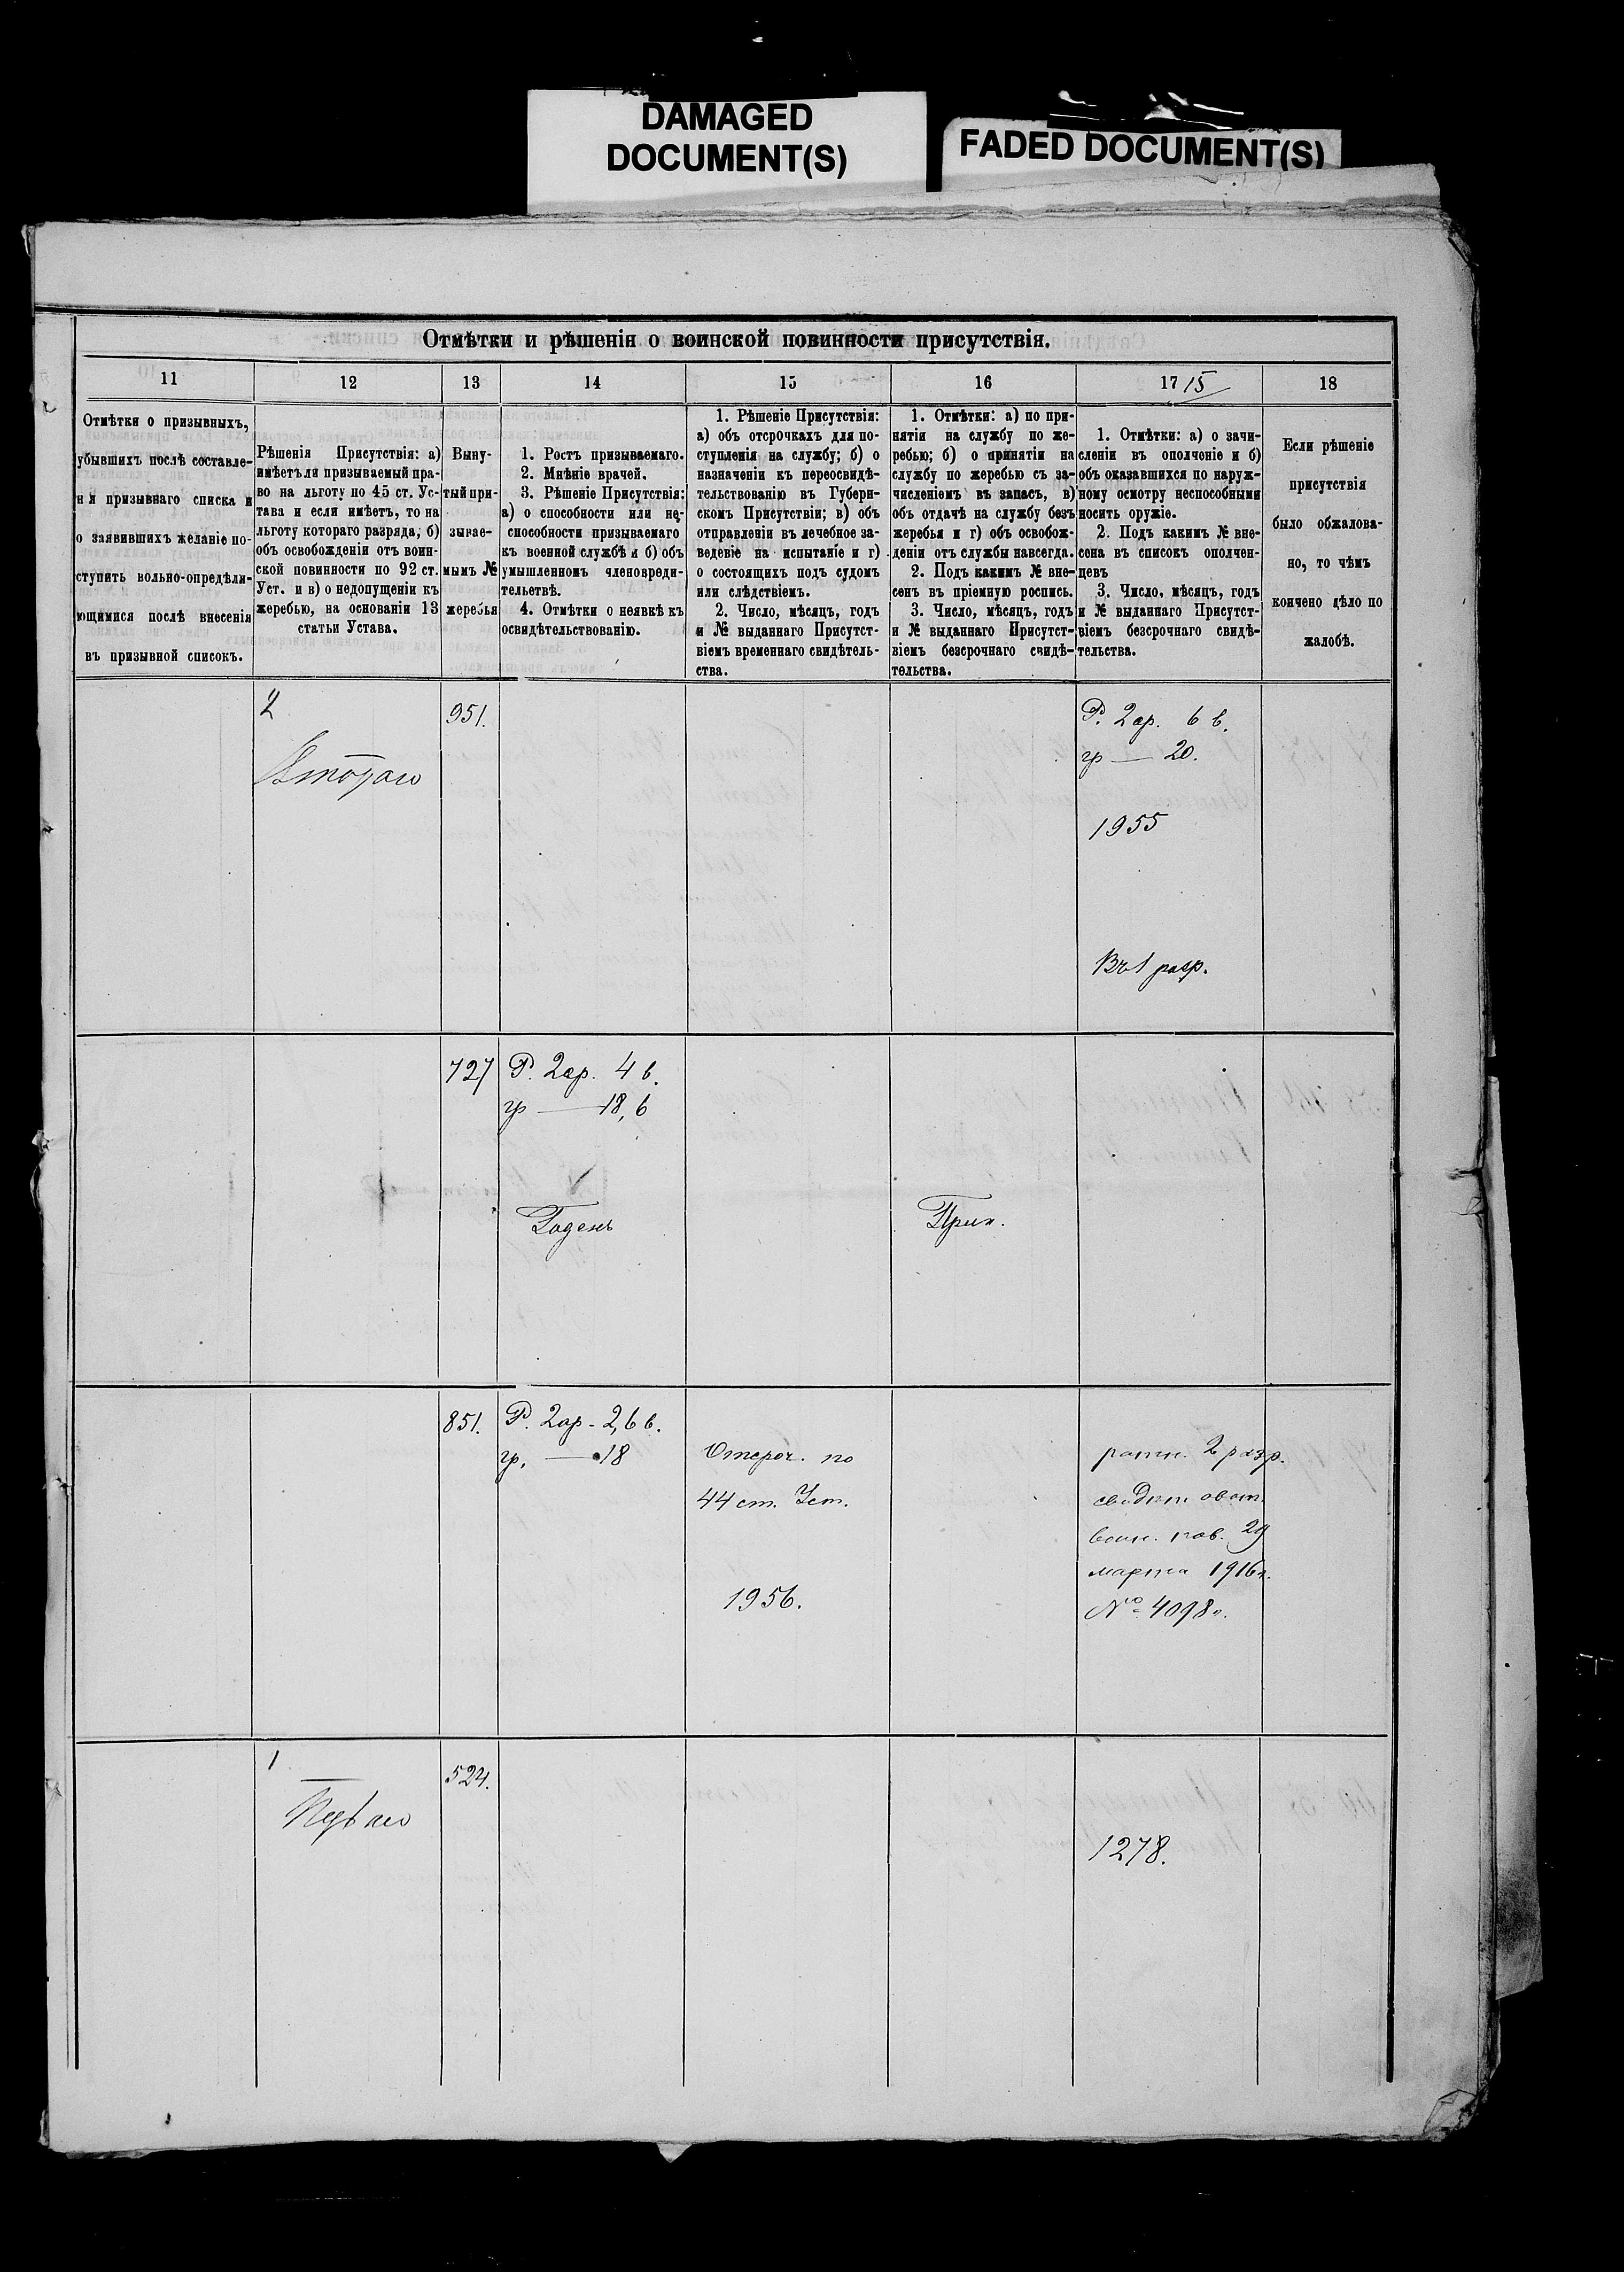 DAMAGED
DOCUMENT(S)
FADED DOCUMENT(S)
Отмѣтки и рѣшенія о воинской повинности присутствія.
11
12
13
14
15
16
17 15
18
Отмѣтки о призывныхъ,
убывшихъ послѣ составле-
нія призывнаго списка и
о заявившихъ желаніе по-
ступить вольно-опредѣли-
ющимися послѣ внесенія
въ призывной списокъ.
Рѣшенія Присутствія: а)
имѣетъ ли призываемый пра-
во на льготу по 45 ст. Ус-
тава и если имѣетъ, то на
льготу котораго разряда; б)
объ освобожденіи отъ воин-
ской повинности по 92 ст.
Уст. и в) о недопущеніи къ
жеребью, на основаніи 13
статьи Устава.
Выну-
тый при-
зывае-
мымъ №
жеребья
1. Ростъ призываемаго.
2. Мнѣніе врачей.
3. Рѣшеніе Присутствія:
а) о способности или не-
способности призываемаго
къ военной службѣ и б) объ
умышленномъ членовреди-
тельствѣ.
4. Отмѣтки о неявкѣ къ
освидѣтельствованію.
1. Рѣшеніе Присутствія:
а) объ отсрочкахъ для по-
ступленія на службу; б) о
назначеніи къ переосвидѣ-
тельствованію въ Губерн-
скомъ Присутствіи; в) объ
отправленіи въ лечебное за-
веденіе на испытаніе и г)
о состоящихъ подъ судомъ
или слѣдствіемъ.
2. Число, мѣсяцъ, годъ
и № выданнаго Присутст-
віемъ временнаго свидѣтель-
ства.
1. Отмѣтки: а) по при-
нятіи на службу по же-
ребью; б) о принятіи на
службу по жеребью съ за-
численіемъ въ запасъ, в)
объ отдачѣ на службу безъ
жеребья и г) объ освобож-
деніи отъ службы навсегда.
2. Подъ какимъ № вне-
сенъ въ пріемную роспись.
3. Число, мѣсяцъ, годъ
и № выданнаго Присутст-
віемъ безсрочнаго свидѣ-
тельства.
1. Отмѣтки: а) о зачи-
сленіи въ ополченіе и б)
объ оказавшихся по наруж-
ному осмотру неспособными
носить оружіе.
2. Подъ какимъ № вне-
сена въ списокъ ополчен-
цевъ
3. Число, мѣсяцъ, годъ
и № выданнаго Присутст-
віемъ безсрочнаго свидѣ-
тельства.
Если рѣшеніе
присутствія
было обжалова-
но, то чѣмъ
кончено дѣло по
жалобѣ.
2
Втораго
951.
Р. 2ар. 6 в.
гр — 20.
1955
Въ 1 разр.
727
Р. 2ар. 4 в.
гр — 18,6
Годенъ
Прин.
851.
Р. 2ар - 2,6 в.
гр. — 18
Отсроч. по
44 ст. Уст.
1956.
ратн. 2 разр.
воин. пов. 29
марта 1916 г.
№ 4098.
1
Перваго
524.
1278.